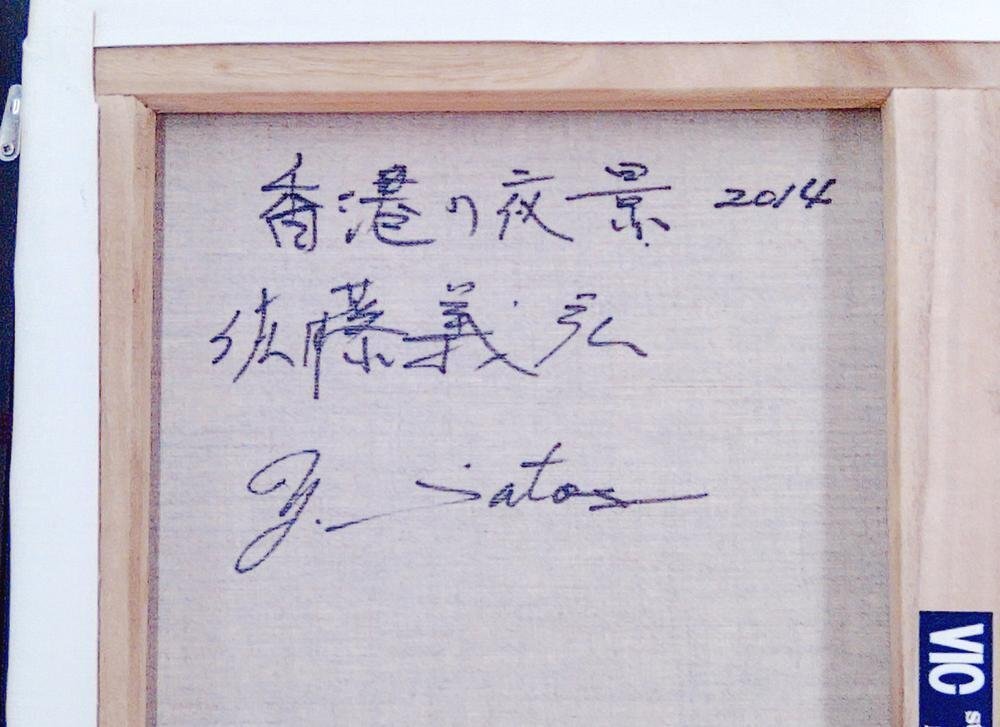 香港の夜景 2014
佐藤義弘
Y. Satou
VIC